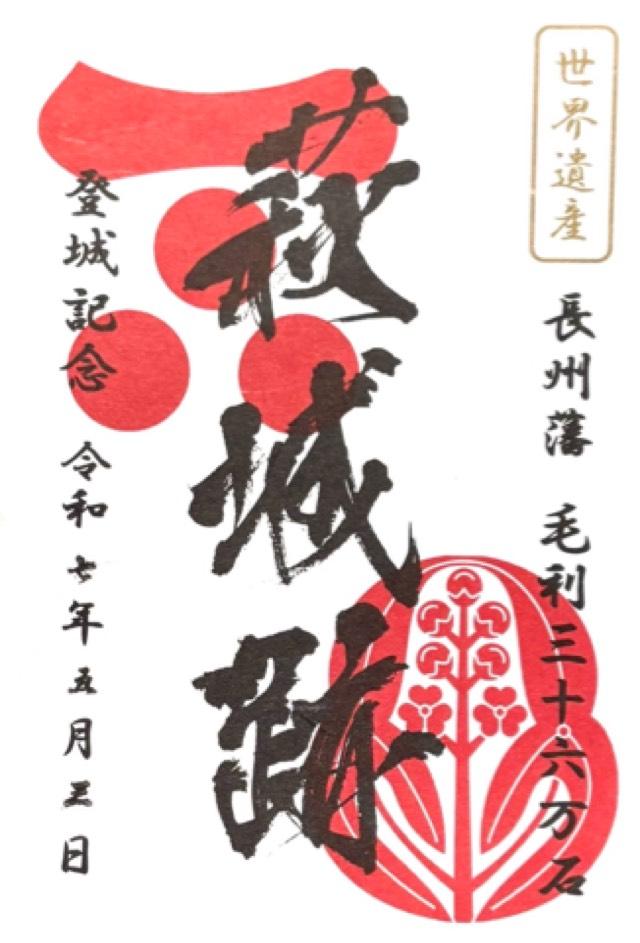 世界遺産
長州藩 毛利三十六万石
萩城跡
登城記念 令和七年五月三日